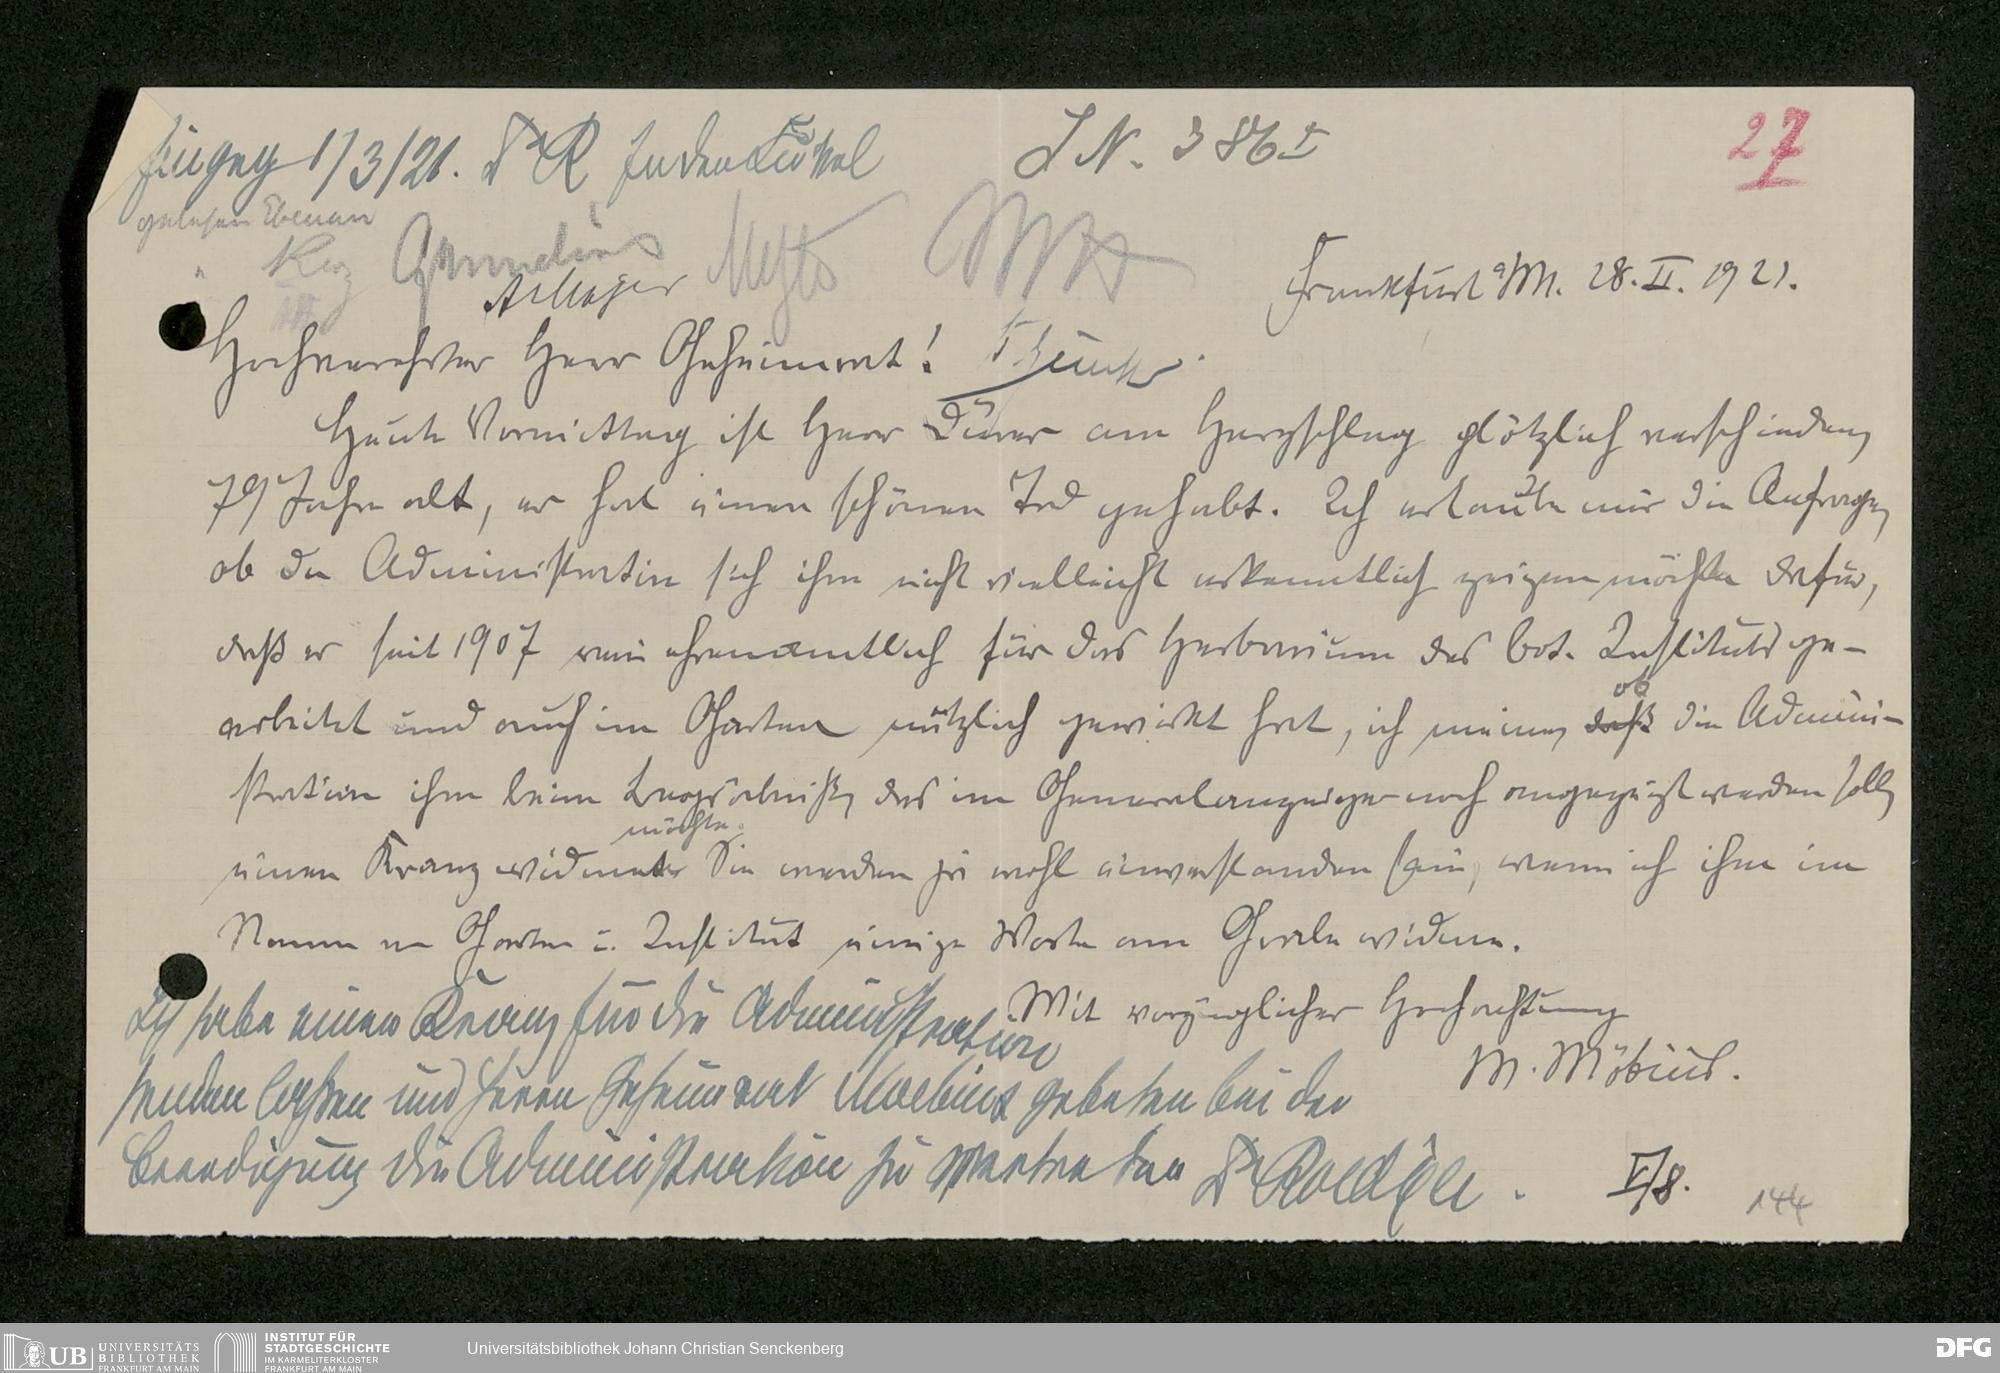 Eingeg 1/3/21. Dr R In den Cirkel
J N. 386 I
27
gelesen Ebenau
A. Majer
Frankfurt a/M. 28. II. 1921.
Hochverehrter Herr Geheimrat!
Heute Vormittag ist Herr Dürer am Herzschlag plötzlich verschieden,
79 Jahre alt, er hat einen schönen Tod gehabt. Ich erlaube mir die Anfrage,
ob die Administration sich ihm nicht vielleicht erkenntlich zeigen möchte dafür,
daß er seit 1907 rein ehrenamtlich für das Herbarium des bot. Instituts ge-
arbeitet und auch im Garten nützlich gewirkt hat, ich meine, ob die Admini-
stration ihm beim Begräbniß, das im Generalanzeiger noch angezeigt werden soll,
einen Kranz widmen möchte. Sie werden ja wohl einverstanden sein, wenn ich ihm im
Namen von Garten u. Institut einige Worte am Grabe widme.
Mit vorzüglicher Hochachtung
M. Möbius.
Ich habe einen Kranz für die Administration
senden laßen und Herrn Geheimrat Moebius gebeten bei der
Beerdigung die Administration zu vertreten Dr Roediger.
V/8.
144
UB UNIVERSITÄTS
BIBLIOTHEK
FRANKFURT AM MAIN
INSTITUT FÜR
STADTGESCHICHTE
IM KARMELITERKLOSTER
FRANKFURT AM MAIN
Universitätsbibliothek Johann Christian Senckenberg
DFG